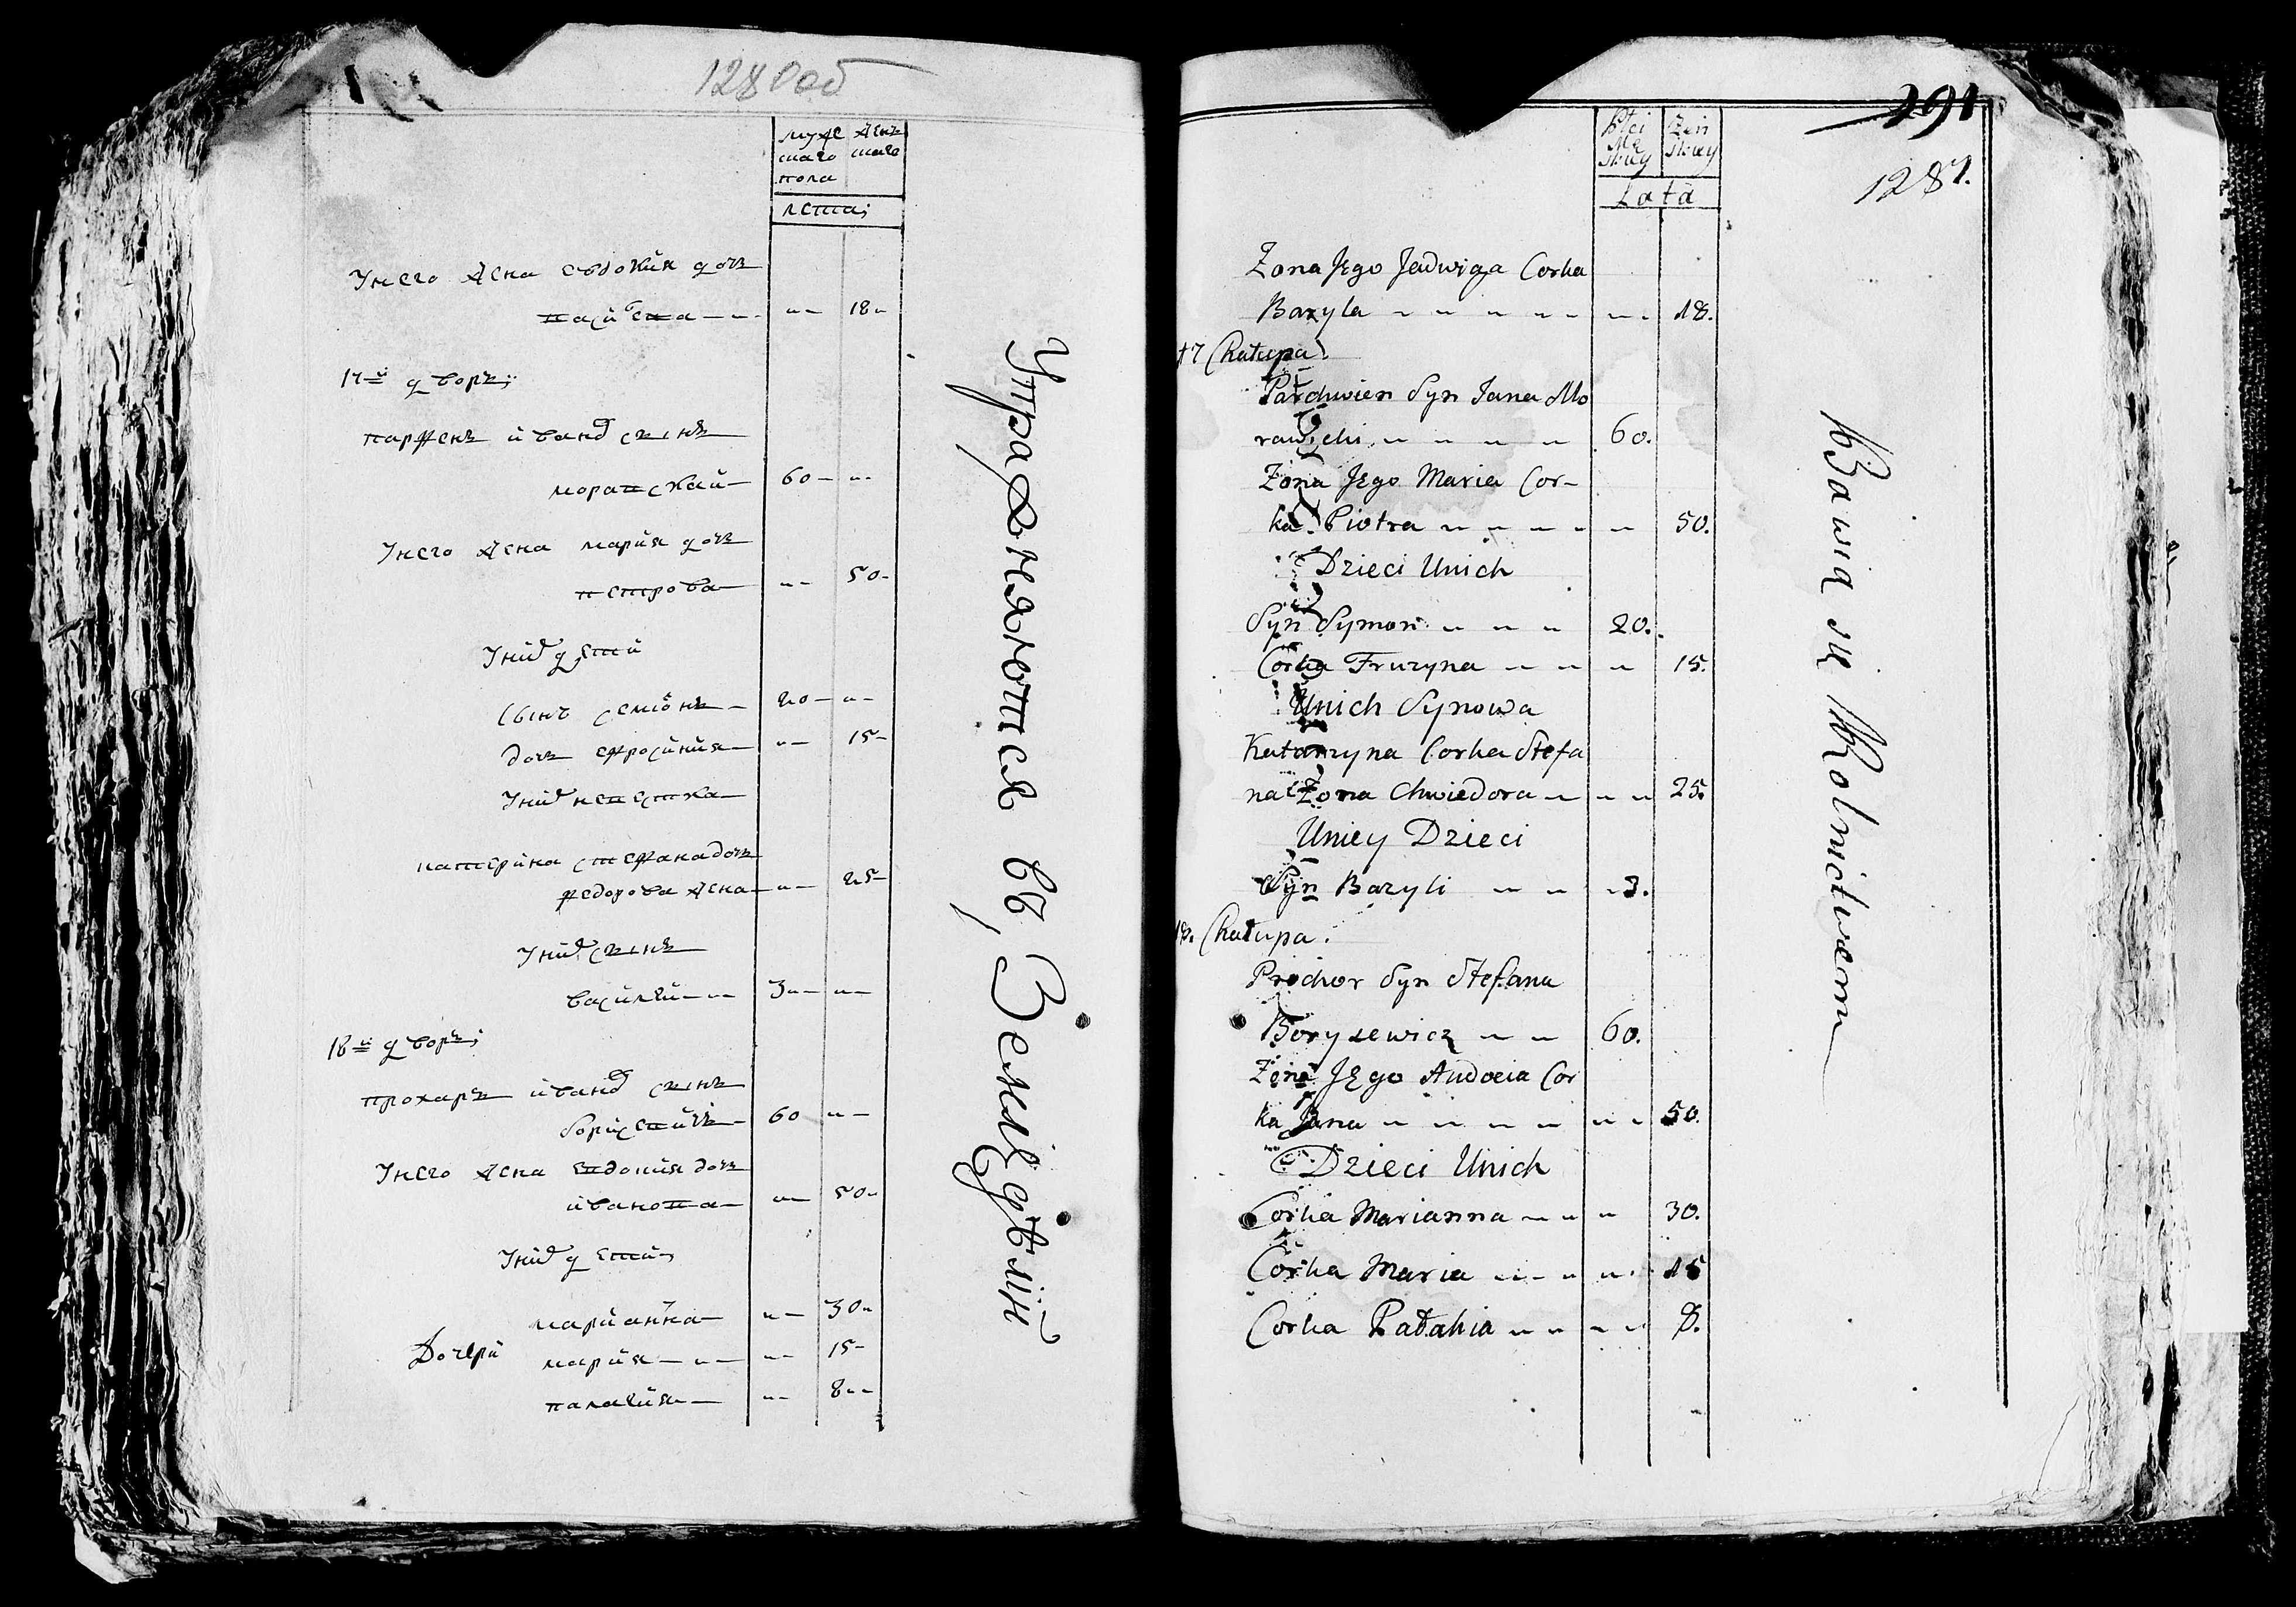 128 об
муже женъ
скаго скаго
пола
лета;
Унего жена евдокия дочь
18
17й дворъ;
парфенъ иванов сынъ
моравской 60
Унего жена мария дочь
петрова 50
Уних дети
сынъ семионъ 20
дочь ефросиния 15
Уних невестка
катерина стефана дочь
федорова жена 25
Уних сынъ
василей 3
18й дворъ;
прохаръ иванов сынъ
борисевичъ 60
Унего жена евдокия дочь
иванова 50
Уних дети
марианна 30
Дочери мария 15
палагия 8
Упражняются въ Земледелии
291
1287.
Płci Żeń
Mę skiey
skiey
Lata
Zona Jego Jadwiga Corka
Bazyla 18.
17 Chałupa.
Parchwien Syn Jana Mo
rawski 60.
Zona Jego Maria Cor-
ka Piotra 50.
Dzieci Unich
Syn Symon 20.
Corka Fruzyna 15.
Unich Synowa
Katarzyna Corka Stefa
na Zona Chwiedora 25.
Uniey Dzieci
Syn Bazyli 3.
18. Chałupa.
Prochor Syn Stefana
Borysewicz 60.
Zona Jego Audocia Cor
ka Jana 50.
Dzieci Unich
Corka Marianna 30.
Corka Maria 15
Corka Pałahia 8.
Bawią się Rolnictwem